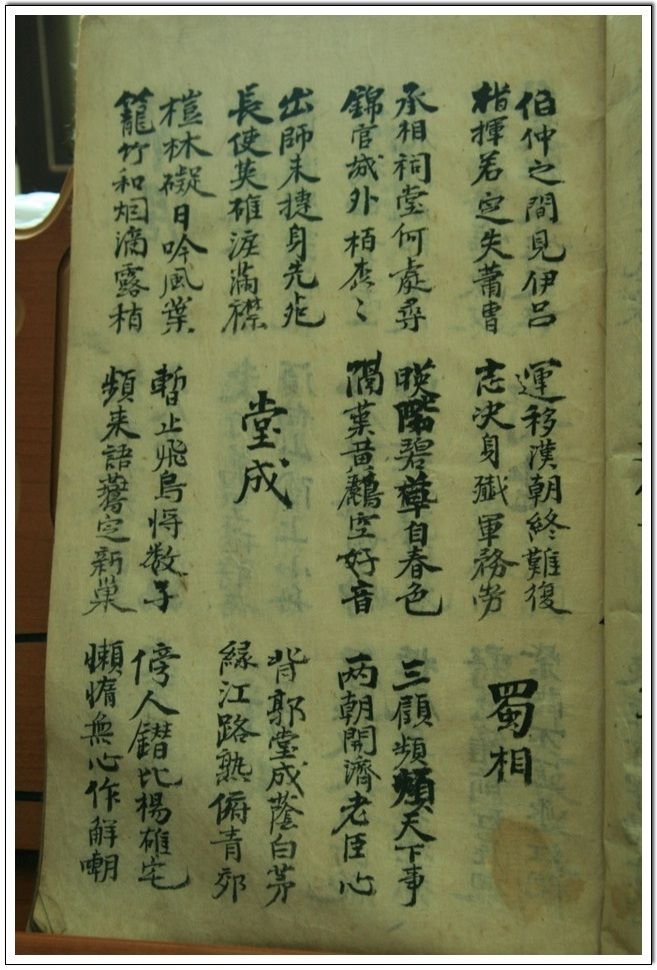 伯仲之間見伊呂
指揮若定失蕭曹
運移漢朝終難復
志决身殲軍務勞
蜀相
承相祠堂何處尋
錦官城外栢森〻
暎階碧草自春色
隔葉黃鸝空好音
三顧頻煩天下事
两朝開濟老臣心
出師未捷身先死
長使英雄淚滿襟
堂成
背郭堂成蔭白茅
緣江路熟俯青郊
榿林礙日吟風葉
籠竹和烟滴露梢
暫止飛鳥将数子
頻来語鷰定新巢
傍人錯比楊雄宅
懶惰無心作解嘲